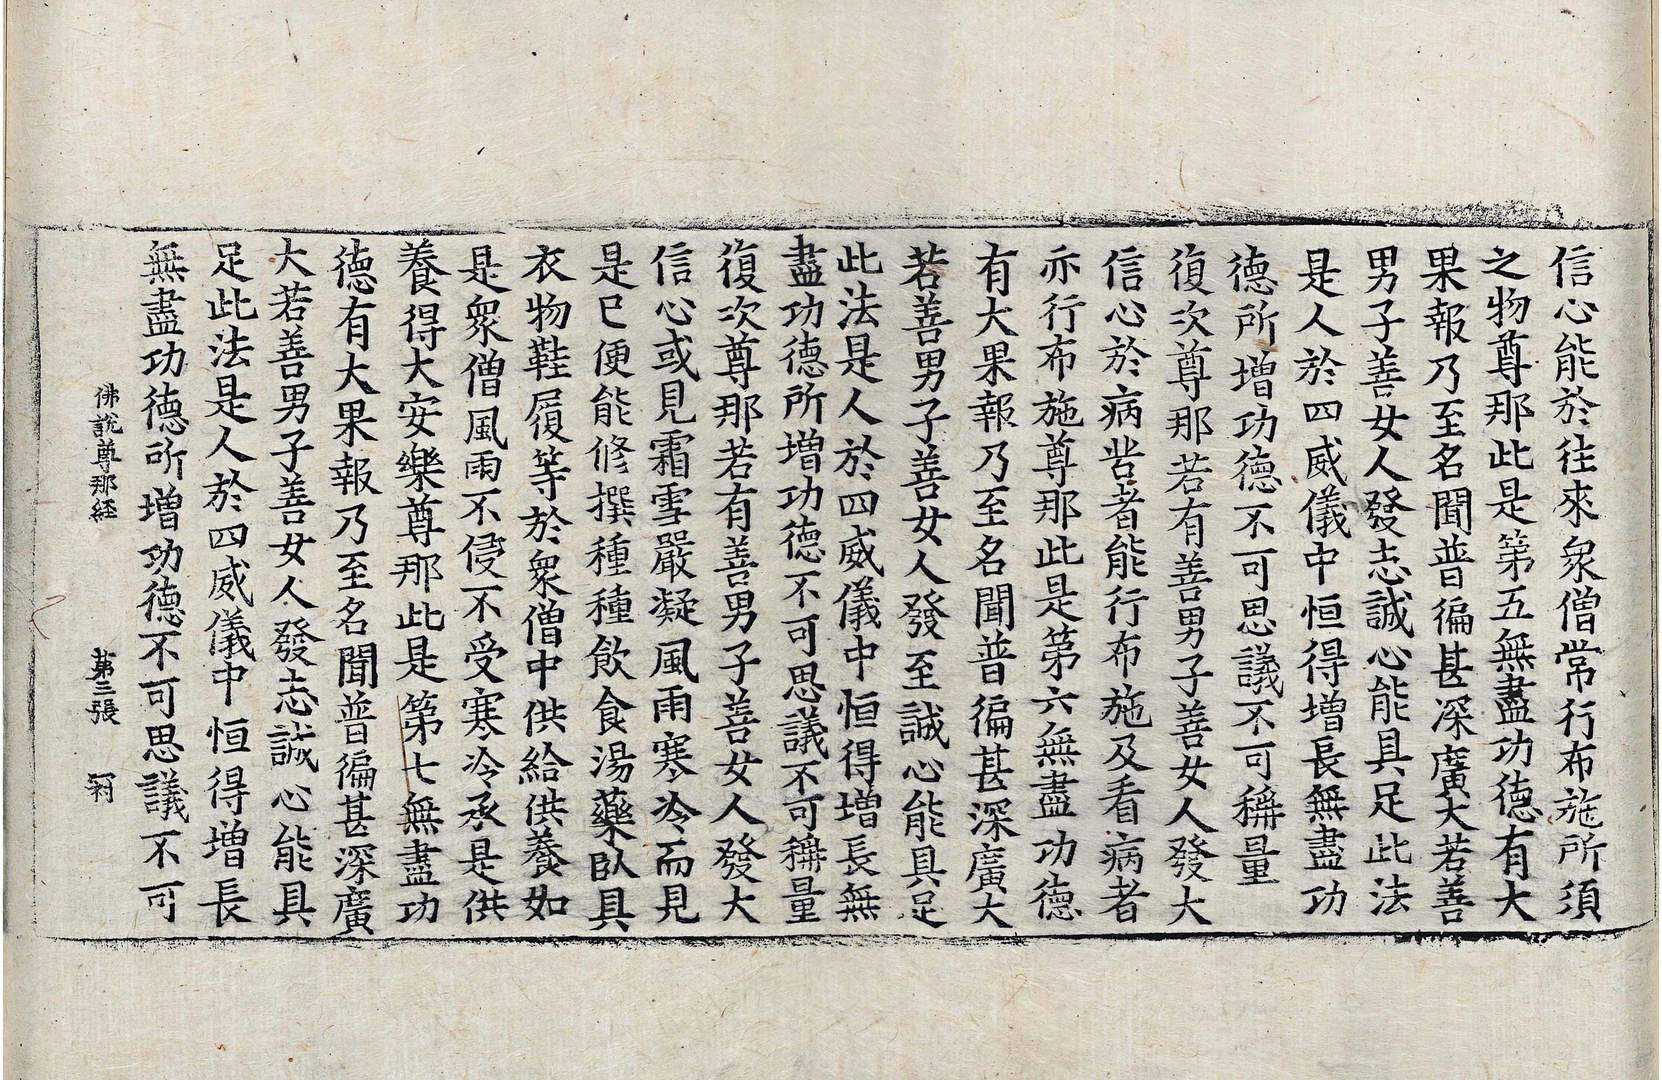 信心能於往來衆僧常行布施所須
之物尊那此是第五無盡功德有大
果報乃至名聞普徧甚深廣大若善
男子善女人發志誠心能具足此法
是人於四威儀中恒得增長無盡功
德所增功德不可思議不可稱量
復次尊那若有善男子善女人發大
信心於病苦者能行布施及看病者
亦行布施尊那此是第六無盡功德
有大果報乃至名聞普徧甚深廣大
若善男子善女人發至誠心能具足
此法是人於四威儀中恒得增長無
盡功德所增功德不可思議不可稱量
復次尊那若有善男子善女人發大
信心或見霜雪嚴凝風雨寒冷而見
是已便能修撰種種飲食湯藥臥具
衣物鞋履等於衆僧中供給供養如
是衆僧風雨不侵不受寒冷承是供
養得大安樂尊那此是第七無盡功
德有大果報乃至名聞普徧甚深廣
大若善男子善女人發志誠心能具
足此法是人於四威儀中恒得增長
無盡功德所增功德不可思議不可
佛説尊那経 第三張